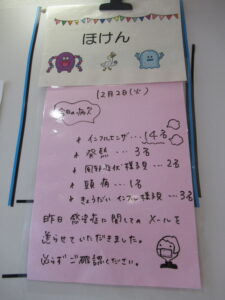 ほけん
12月2日(火)
今日の病欠
インフルエンザ…14名
発熱…3名
風邪症状様子見…2名
頭痛…1名
きょうだいインフル様子見…3名
昨日 感染症に関してのメールを
送らせていただきました。
必ずご確認ください。